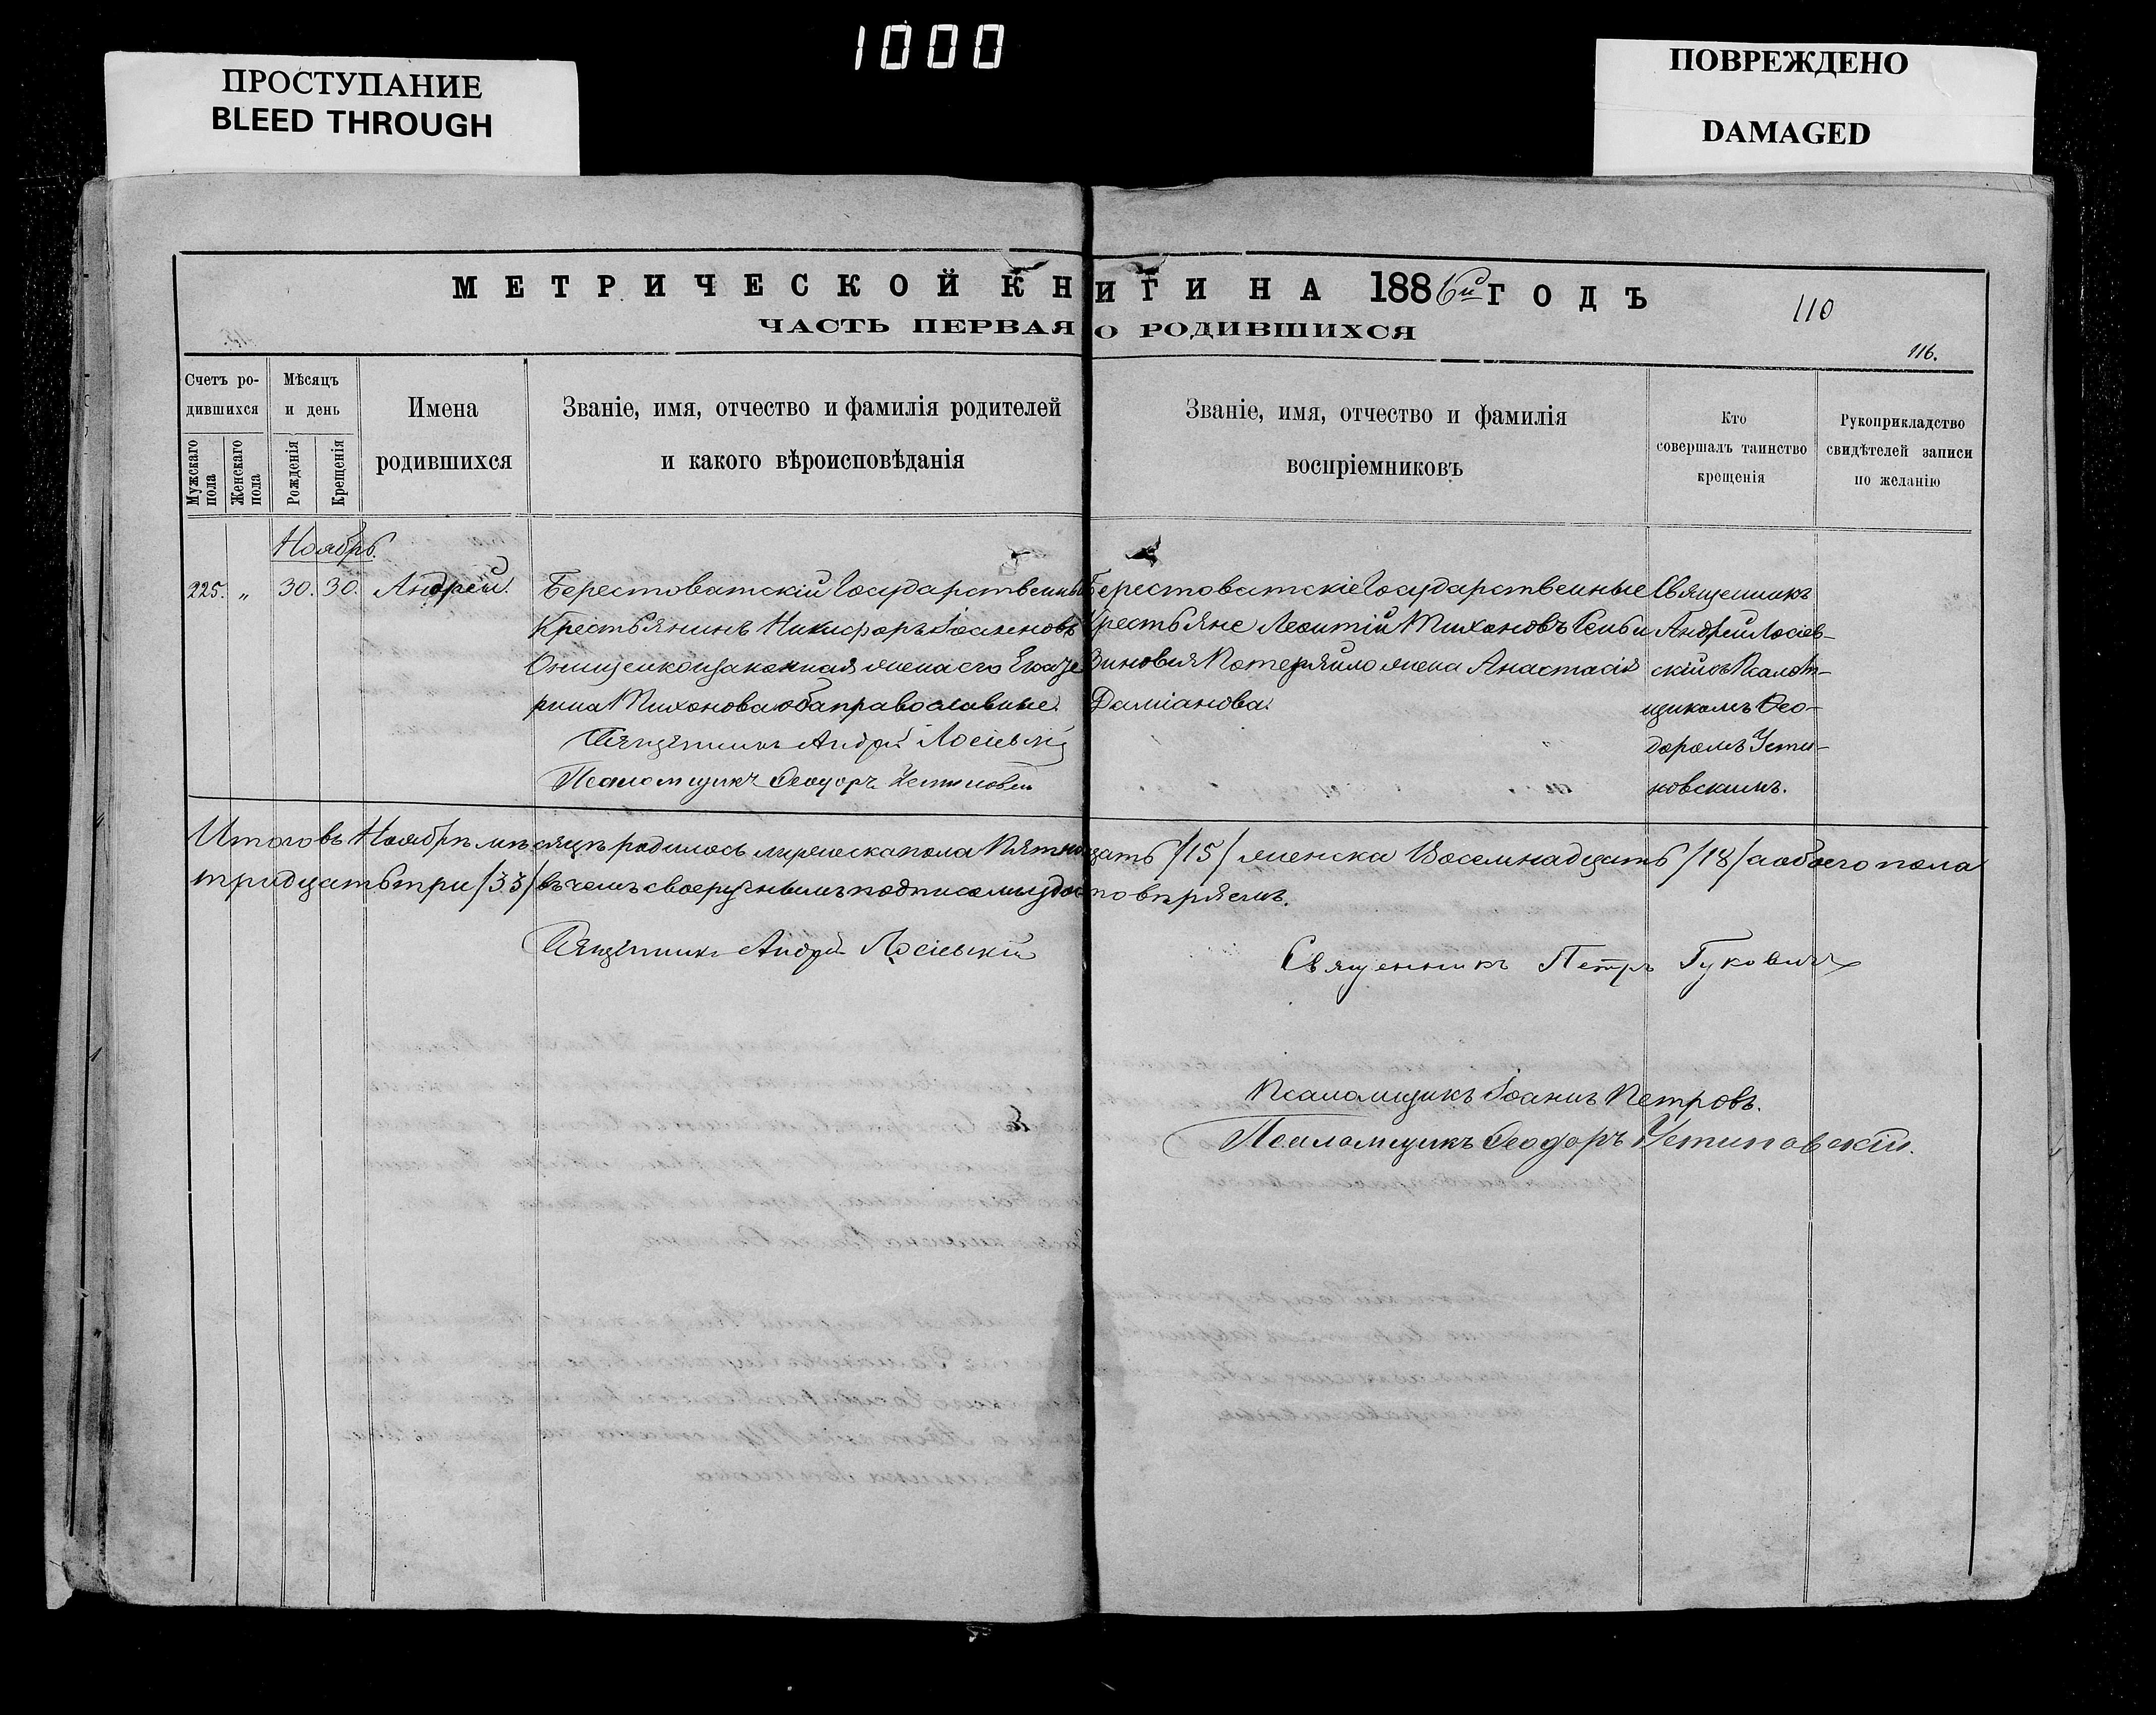 1000
ПРОСТУПАНИЕ
BLEED THROUGH
ПОВРЕЖДЕНО
DAMAGED
МЕТРИЧЕСКОЙ КНИГИ НА 1886й ГОДЪ
110
ЧАСТЬ ПЕРВАЯ О РОДИВШИХСЯ
116.
Счетъ ро-
дившихся
Мужскаго пола
Женскаго пола
Мѣсяцъ
и день
Рожденія
Крещенія
Имена
родившихся
Званіе, имя, отчество и фамилія родителей
и какого вѣроисповѣданія
Званіе, имя, отчество и фамилія
воспріемниковъ
Кто
совершалъ таинство
крещенія
Рукоприкладство
свидѣтелей записи
по желанію
Ноябрь.
225. „ 30. 30. Андрей.
Берестоватскій Государственный
Крестьянинъ Никифоръ Іоанновъ
Онищенко и законная жена его Екате
рина Тихонова оба православные.
Священникъ Андрей Лосіевскій
Псаломщикъ Ѳеодоръ Устиновскій
Берестоватскіе Государственные
Крестьяне Леонтій Тихоновъ
Зиновія Потеряйло жена Анастасія
Даміанова.
Священникъ
Андрей Лосіев-
скій съ Псалом-
щикомъ Ѳео-
доромъ Усти-
новскимъ.
Итого въ Ноябрѣ мѣсяцѣ родилось мужеска пола Пятнадцать /15/ женска Восемнадцать /18/ а обоего пола
тридцать три /33/ въ чемъ своеручнымъ подписомъ удостовѣряемъ.
Священникъ Андрей Лосіевскій
Священникъ Петръ Гуковичъ
Псаломщикъ Іоаннъ Петровъ.
Псаломщикъ Ѳеодоръ Устиновскій.